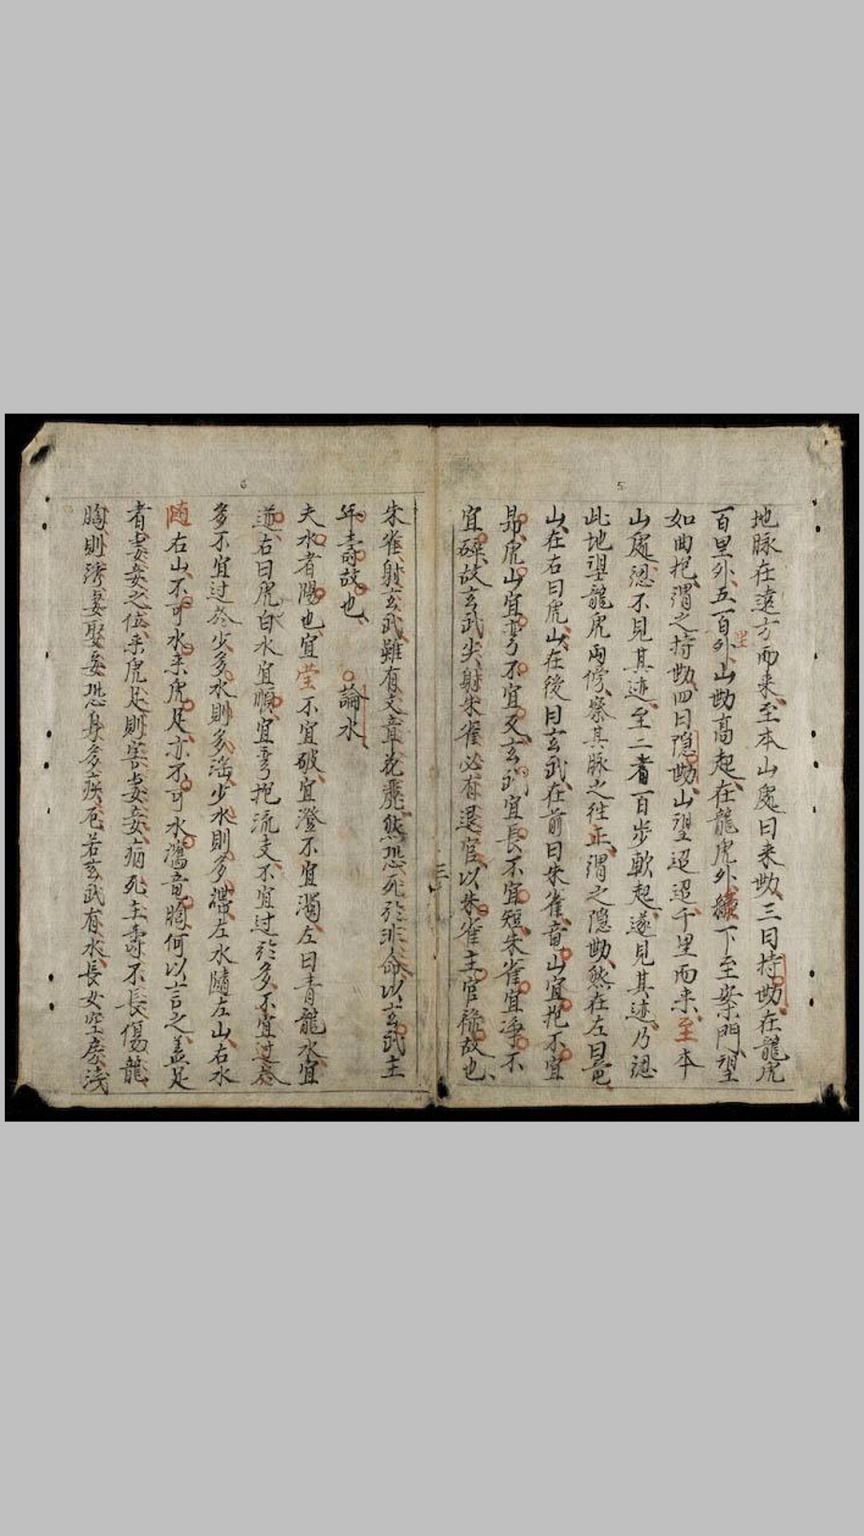 5
地脉在遠方而来至本山處曰来勢三曰持勢在龍虎
百里外五百里外山勢高起在龍虎外 下至案門望
如曲抱謂之持勢四曰隠勢山望迢迢千里而来至本
山處忽不見其迹至二者百步軟起遂見其迹乃認
此地望龍虎両傍察其脉之往正謂之隠勢然在左曰竜
山在右曰虎山在後曰玄武在前曰朱雀竜山宜抱不宜
昂虎山宜彎不宜叉玄武宜長不宜短朱雀宜净不
宜礙故玄武尖射朱雀必有退官以朱雀主官祿故也
三
6
朱雀射玄武雖有文章 然恐死於非命以玄武主
年壽故也 論水
夫水者陽也宜瑩不宜破宜澄不宜濁左曰青龍水宜
遶右曰虎白水宜順宜彎抱流支不宜过於多不宜过於
多不宜过於少多水則多 少水則多滯左水隨左山右水
随右山不可水来虎足亦不可水 竜胸何以言之盖足
者妻妾之位来虎足則害妻妾病死主壽不長傷龍
胸則 妻娶妾恐身多疾危若玄武有水長女空房浅